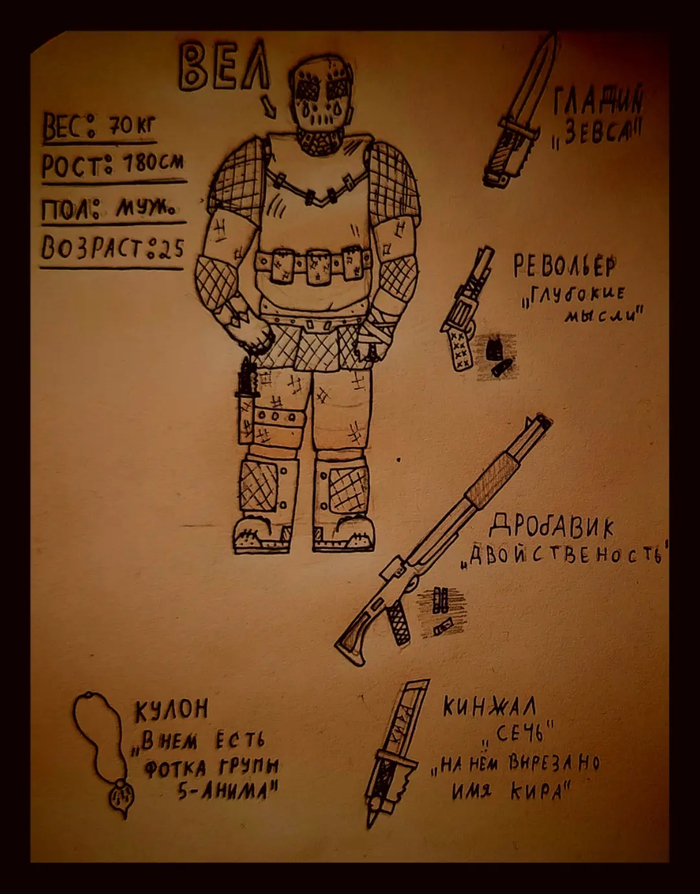 ВЕЛ
ВЕС: 70 КГ
РОСТ: 180СМ
ПОЛ: МУЖ.
ВОЗРАСТ:25
ГЛАДИЙ
„ЗЕВСА"
РЕВОЛЬВЕР
„ГЛУБОКИЕ
МЫСЛИ"
ДРОБАВИК
„ДВОЙСТВЕНОСТЬ"
КУЛОН
„В НЕМ ЕСТЬ
ФОТКА ГРУПЫ
5-АНИМА"
КИНЖАЛ
„СЕЧЬ"
„НА НЁМ ВЫРЕЗАНО
ИМЯ КИРА"